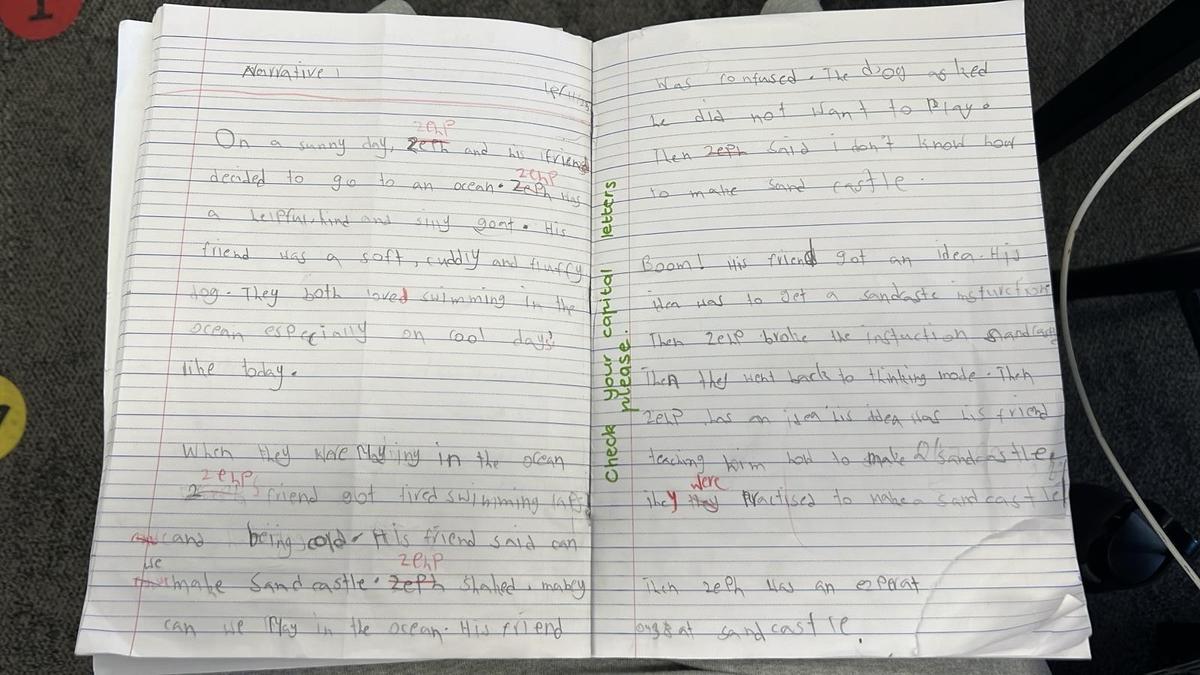 Narrative 1
On a sunny day, zehp zeph and his friend
decided to go to an ocean. zehp zeph was
a helpful, kind and silly goat. His
friend was a soft, cuddly and fluffy
dog. They both loved swimming in the
ocean especially on cool days
like today.
When they were playing in the ocean
zehp's friend got tired swimming
and being cold. His friend said can
we
make Sand castle. zehp zeph shaked,
can we play in the ocean. His friend
Check your capital letters
please.
Was confused. The dog asked
he did not want to play.
Then zeph said i don't know how
to make sand castle.
Boom! His friend got an idea. His
was to get a sandcaste
Then zehp broke the instuction
Then they went back to thinking mode. Then
zehp has an idea his idea was his friend
teaching him how to make a sandcastle
were
they they Practised to make a sand castle
Then zeph was an
at sand castle.